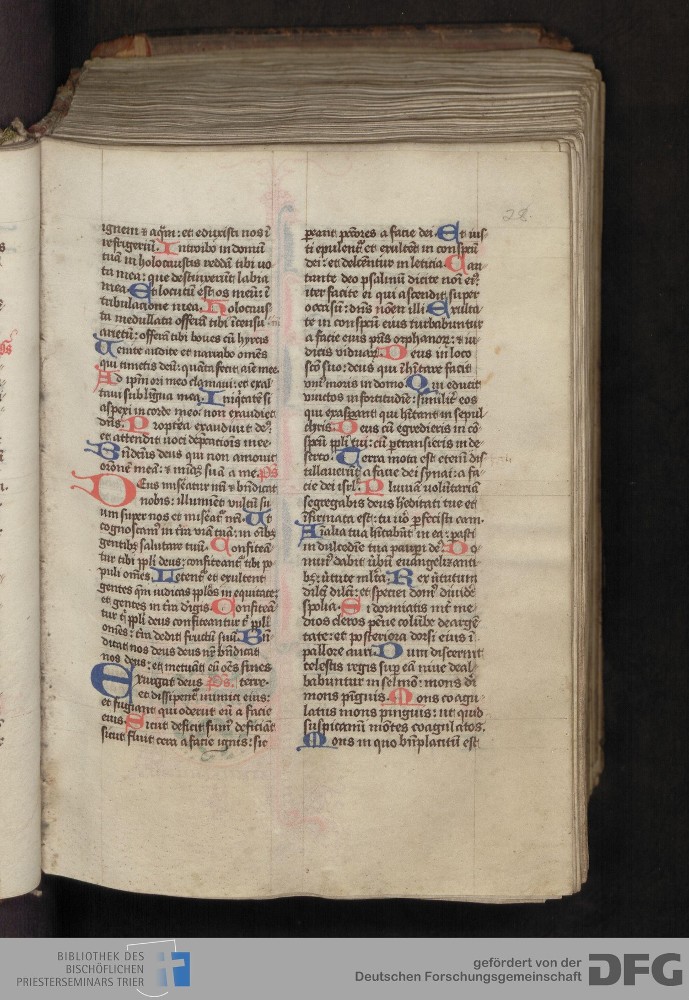 28.
ignem ⁊ aqm̄: et eduxisti nos ī
refrigeriū. Introibo in domū
tuā in holocaustis reddā tibi uo
ta mea: que distinxerūt labia
mea. Et locutū est os meū: ī
tribulacione mea. Holocaus
ta medullata offerā tibi
arietū: offerā tibi boues cū hyrcis
Uenite audite et narrabo om̄es
qui timetis deū: quāta fecit aīe mee.
Ad ip̄m ori meo clamaui: et exal
taui sub līgua mea. Iniq̄tatē si
aspexi in corde meo: non exaudiet
dn̄s. Propterea exaudiuit deꝰ:
et attendit uoci dep̄cationis mee
Bn̄dictus deus qui non amouit
orōnē meā: ⁊ mīaȝ suā a me. ps̄
Deus misereatur nr̄i ⁊ bn̄dicat
nobis: illuminet uultū su
um super nos et miseatᷣ nr̄i. Ut
cognoscamꝰ in t̄ra uiā tuā: in oībȝ
gentibȝ salutare tuū. Confiteā
tur tibi ppl̄i deus: confiteantᷣ tibi po
puli om̄es. Letentᷣ et exultent
gentes qm̄ iudicas ppl̄os in equitate:
et gentes in t̄ra dirigis. Confiteā
tur t̄ ppl̄i deus confiteantur t̄ ppl̄i
om̄es: t̄ra dedit fructū suū. Bn̄
dicat nos deus deus nr̄ bn̄dicat
nos deus: et metuāt eū oēs fines
Exurgat deus ps̄. terre.
et dissipentᷣ inimici eius:
et fugiant qui oderūt eū a facie
eius. Sicut deficit fumꝰ deficiāt
sicut fluit cera a facie ignis: sic
pereant pctōres a facie dei. Et ius
ti epulentᷣ et exultēt in conspcū
dei: et delectentur in leticia. Can
tate deo psalmū dicite noī eiꝰ:
iter facite ei qui ascendit super
occasū: dn̄s nom̄ illi. Exulta
te in conspcū eius turbabuntur
a facie eius pr̄is orphanoꝝ: ⁊ iu
dicis viduaꝝ. Deus in loco
scō suo: deus qui īhītare facit
uniꝰ moris in domo. Qui educit
uinctos in fortitudīe: similit̄ eos
qui exasperant qui hītant in sepul
chris. Deus cū egredieris in cō
spcū ppl̄i tui: cū ptransieris in de
serto. Terra mota est etenī dis
tillauerūt a facie dei synai: a fa
cie dei isrl̄. Pluuiā volūtariā
segregabis deus hereditati tue et
īfirmata est: tu uō pfecisti eam.
Aīalia tua hītabūt in ea: pasti
in dulcedīe tua pauperi deꝰ. Do
minꝰ dabit ūbū euangelizanti
bȝ: uirtute mlt̄a. Rex uirtutum
dilc̄i dilc̄i: et speciei domꝰ diuide
spolia. Si dormiatis int̄ me
dios cleros pēne colūbe deargē
tate: et posteriora dorsi eius ī
pallore auri. Dum discernit
celestis reges sup eā niue deal
babuntur in selmō: mons dī
mons pīguis. Mons coagu
latus mons pinguis: ut quid
suspicamī mōtes coagulatos.
Mons in quo bn̄placitū est
BIBLIOTHEK DES
BISCHÖFLICHEN
PRIESTERSEMINARS TRIER
gefördert von der
Deutschen Forschungsgemeinschaft
DFG